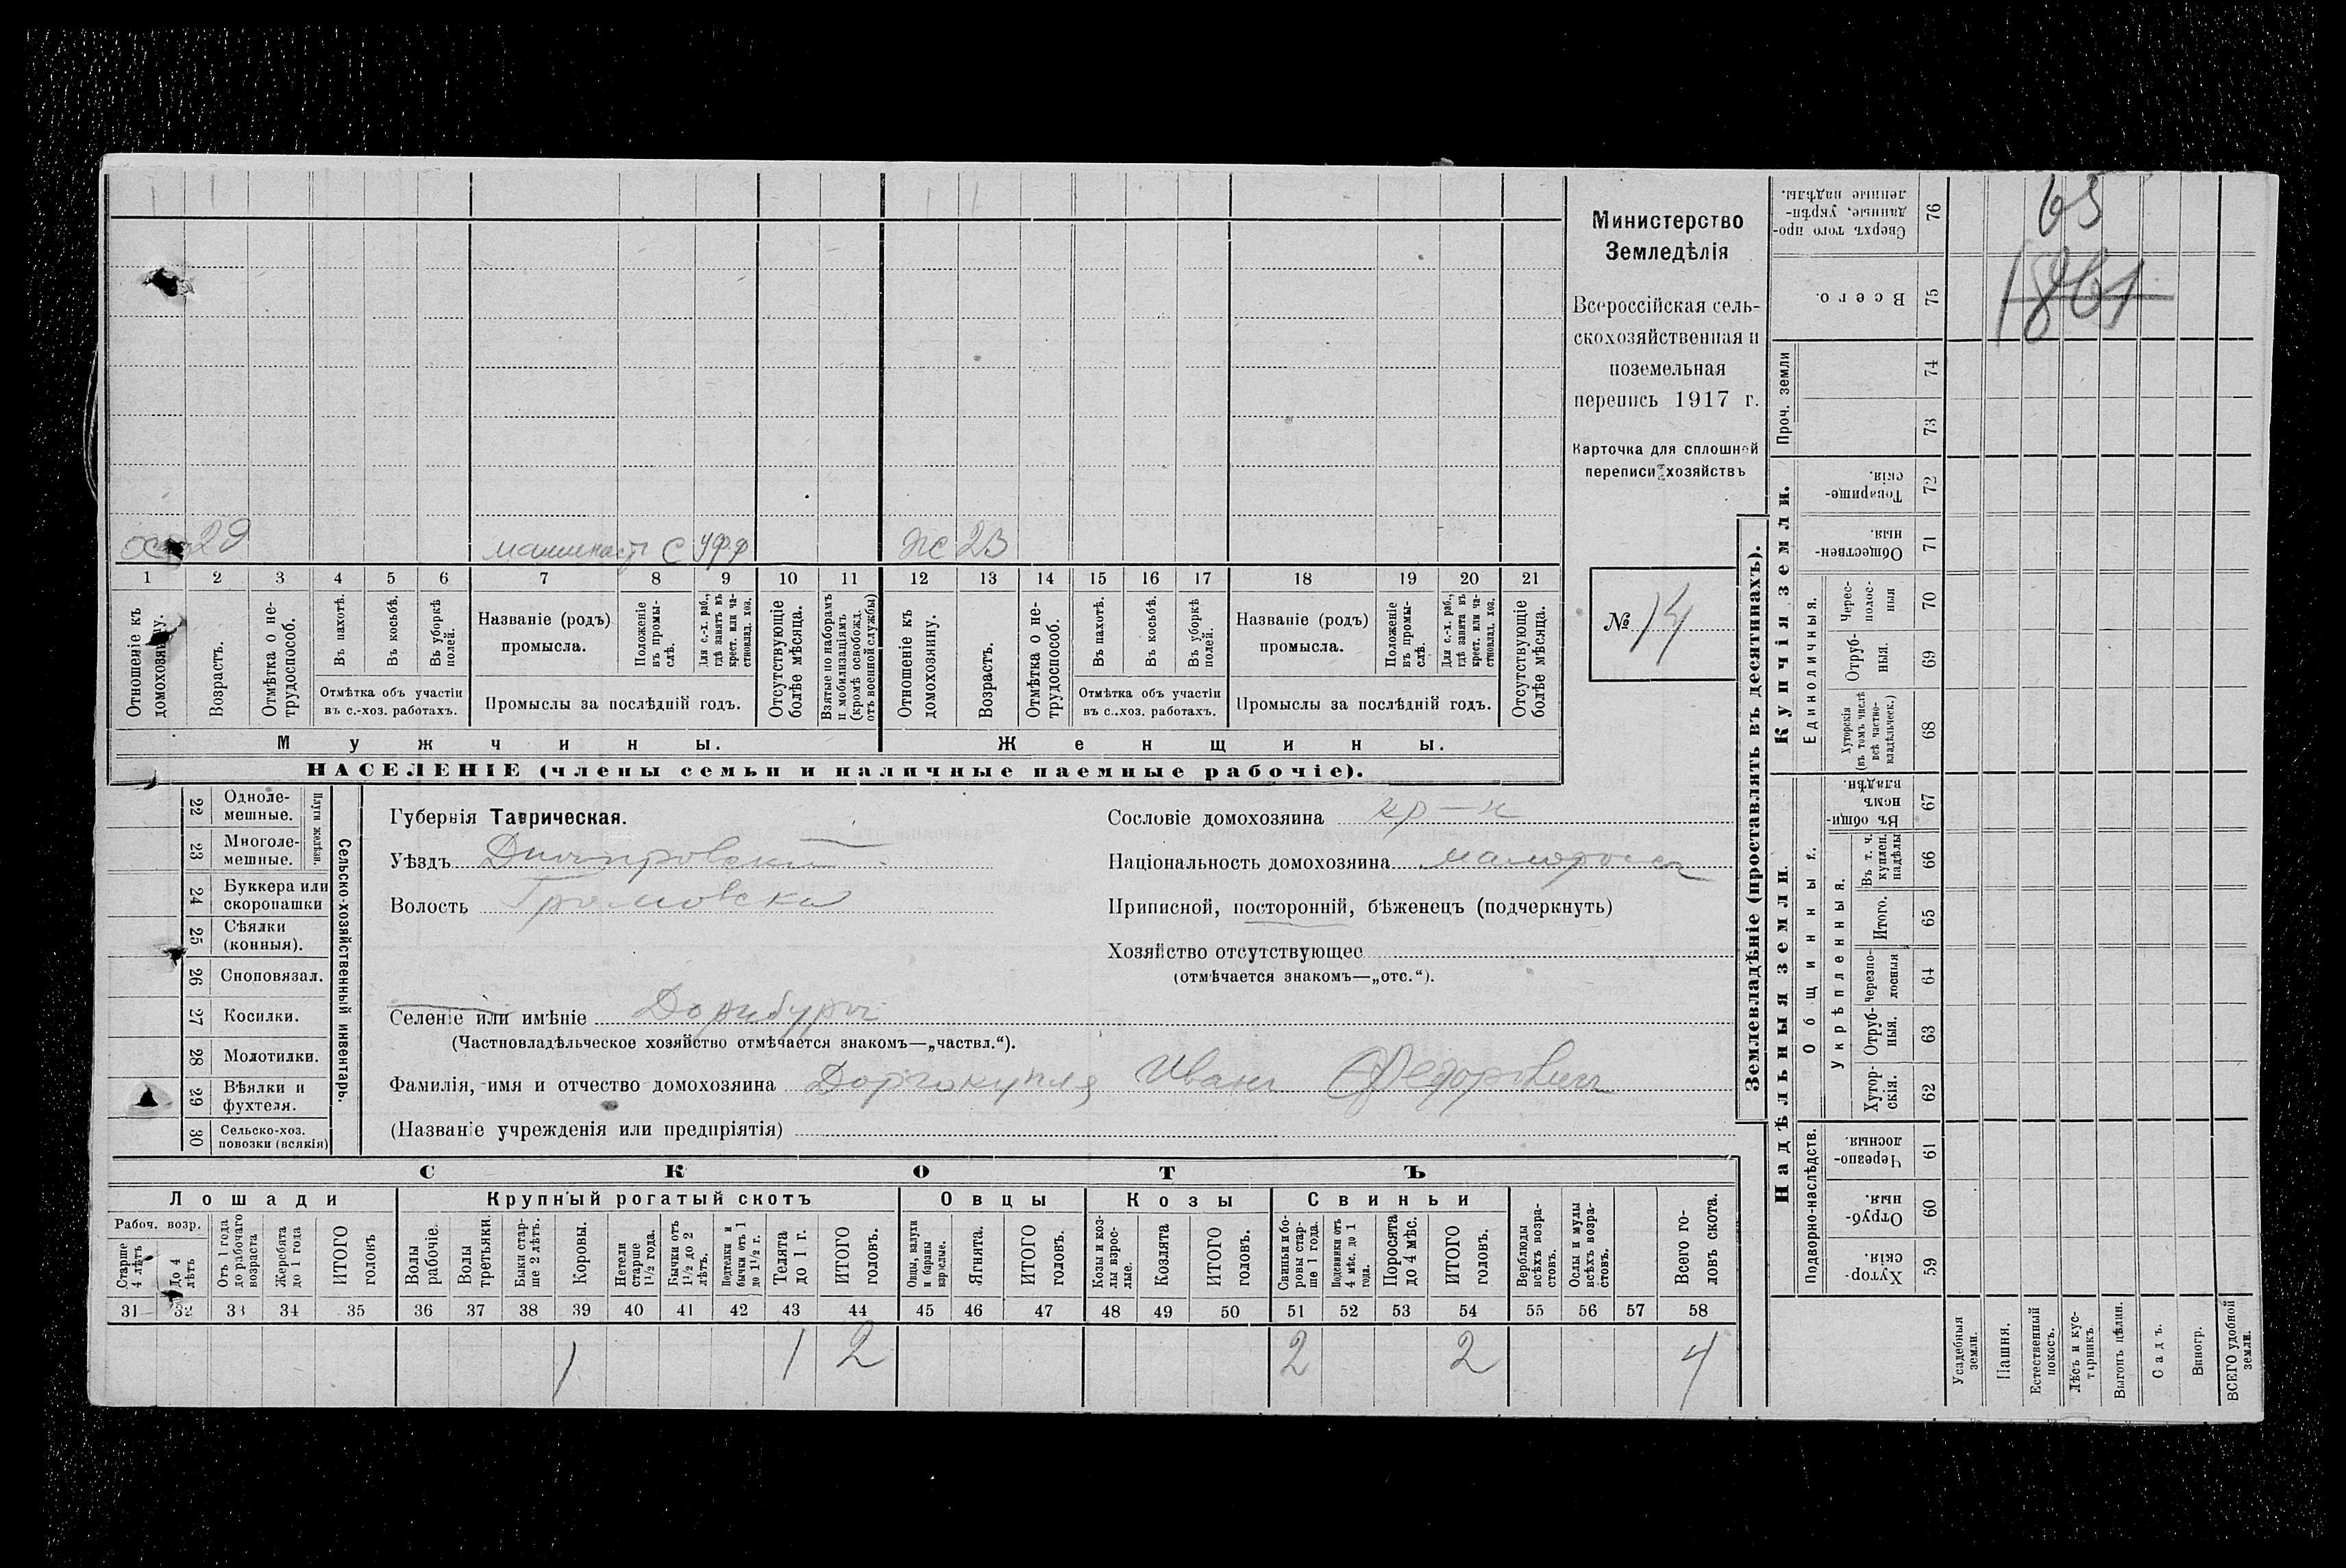 29 машинист С УФФ Ж 23
1 2 3 4 5 6 7 8 9 10 11 12 13 14 15 16 17 18 19 20 21
Отношеніе къ домохозяину.
Возрастъ.
Отмѣтка о не-трудоспособ.
Въ пахотѣ.
Въ косьбѣ.
Въ уборкѣ полей.
Отмѣтка объ участіи
въ с.-хоз. работахъ.
Названіе (родъ)
промысла.
Положеніе въ промы-слѣ.
Для с.-х. раб., гдѣ занятъ въ крест. или ча-стновлад. хоз.
Промыслы за послѣдній годъ.
Отсутствующіе болѣе мѣсяца.
Взятые по наборамъ и мобилизаціямъ (кромѣ освобожд. отъ военной службы)
Отношеніе къ домохозяину.
Возрастъ.
Отмѣтка о не-трудоспособ.
Въ пахотѣ.
Въ косьбѣ.
Въ уборкѣ полей.
Отмѣтка объ участіи
въ с.-хоз. работахъ.
Названіе (родъ)
промысла.
Положеніе въ промы-слѣ.
Для с.-х. раб., гдѣ занята въ крест. или ча-стновлад. хоз.
Промыслы за послѣдній годъ.
Отсутствующіе болѣе мѣсяца.
Мужчины. Женщины.
НАСЕЛЕНІЕ (члены семьи и наличные наемные рабочіе).
Министерство
Земледѣлія
Всероссійская сель-
скохозяйственная и
поземельная
перепись 1917 г.
Карточка для сплошной
переписи хозяйствъ
№ 14
22 Одноле-мешные.
23 Многоле-мешные.
Плуги желѣзн.
24 Буккера или скоропашки
25 Сѣялки (конныя).
26 Сноповязал.
27 Косилки.
28 Молотилки.
29 Вѣялки и фухтеля.
30 Сельско-хоз. повозки (всякія)
Сельско-хозяйственный инвентарь.
Губернія Таврическая.
Уѣздъ Днепровский
Волость Громовская
Сословіе домохозяина кр-н
Національность домохозяина малоросс
Приписной, посторонній, бѣженецъ (подчеркнуть)
Хозяйство отсутствующее
(отмѣчается знакомъ—„отс.“).
Селеніе или имѣніе Дорнбург
(Частновладѣльческое хозяйство отмѣчается знакомъ—„частвл.“).
Фамилія, имя и отчество домохозяина Иван Федорович
(Названіе учрежденія или предпріятія)
СКОТЪ
Лошади Крупный рогатый скотъ Овцы Козы Свиньи
Рабоч. возр.
Старше 4 лѣтъ
До 4 лѣтъ
Отъ 1 года до рабочаго возраста
Жеребята до 1 года
ИТОГО головъ
Волы рабочіе.
Волы третьяки.
Быки стар-ше 2 лѣтъ.
Коровы.
Нетели старше 1½ года.
Бычки отъ 1½ до 2 лѣтъ.
Подтелки и бычки отъ 1 до 1½ г.
Телята до 1 г.
ИТОГО головъ.
Овцы, валухи и бараны взрослые.
Ягнята.
ИТОГО головъ.
Козы и коз-лы взрос-лые.
Козлята
ИТОГО головъ.
Свиньи и бо-ровы стар-ше 1 года.
Подсвинки отъ 4 мѣс. до 1 года.
Поросята до 4 мѣс.
ИТОГО головъ.
Верблюды всѣхъ возра-стовъ.
Ослы и мулы всѣхъ возра-стовъ.
Всего го-ловъ скота.
31 32 33 34 35 36 37 38 39 40 41 42 43 44 45 46 47 48 49 50 51 52 53 54 55 56 57 58
1 1 2 2 2 4
Землевладѣніе (проставлять въ десятинахъ).
Купчія земли.
Надѣльныя земли.
65
1861
76 Сверхъ того про-данные, укрѣп-ленные надѣлы.
75 Всего.
Проч. земли
74
73
72 Товарище-скія.
71 Обществен-ныя.
Единоличныя.
70 Черес-полос-ныя
69 Отруб-ныя.
68 Хуторскія (въ томъ числѣ всѣ частно-владѣльческ.)
Общинныя.
67 Въ общи-номъ владѣн.
Укрѣпленныя.
66 Въ т. ч. куплен. надѣлы
65 Итого.
64 Черезпо-лосныя
63 Отруб-ныя.
62 Хутор-скія.
Подворно-наслѣдств.
61 Черезпо-лосныя
60 Отруб-ныя.
59 Хутор-скія.
Усадебныя земли.
Пашня.
Естественный покосъ.
Лѣсъ и кус-тарникъ.
Выгонъ цѣлин.
Садъ.
Виногр.
ВСЕГО удобной земли.